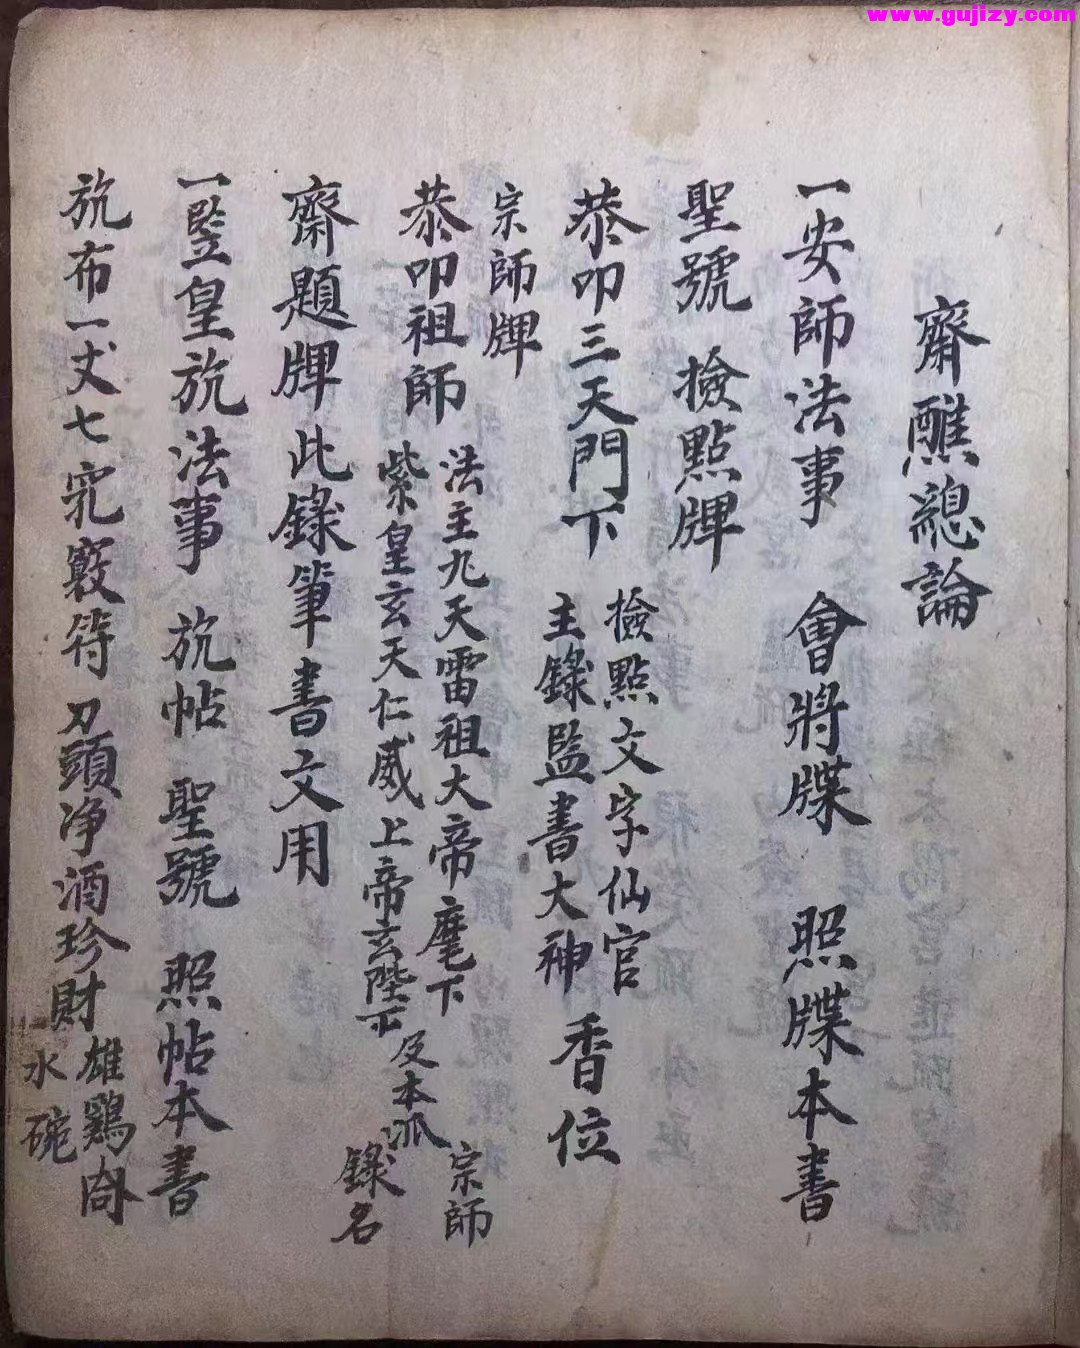 www.gujizy.com
齋醮總論
一安師法事 會將牒 照牒本書
聖號 撿點牌
恭叩三天門下 撿點文字仙官 主錄監書大神 香位
宗師牌
恭叩祖師 法主九天雷祖大帝麾下 紫皇玄天仁威上帝玄陛下 及本派 宗師 錄名
齋題牌此錄筆書文用
一豎皇旂法事 旂帖 聖號 照帖本書
旂布一丈七 竅符 刀頭净酒珍財 雄鷄 水碗